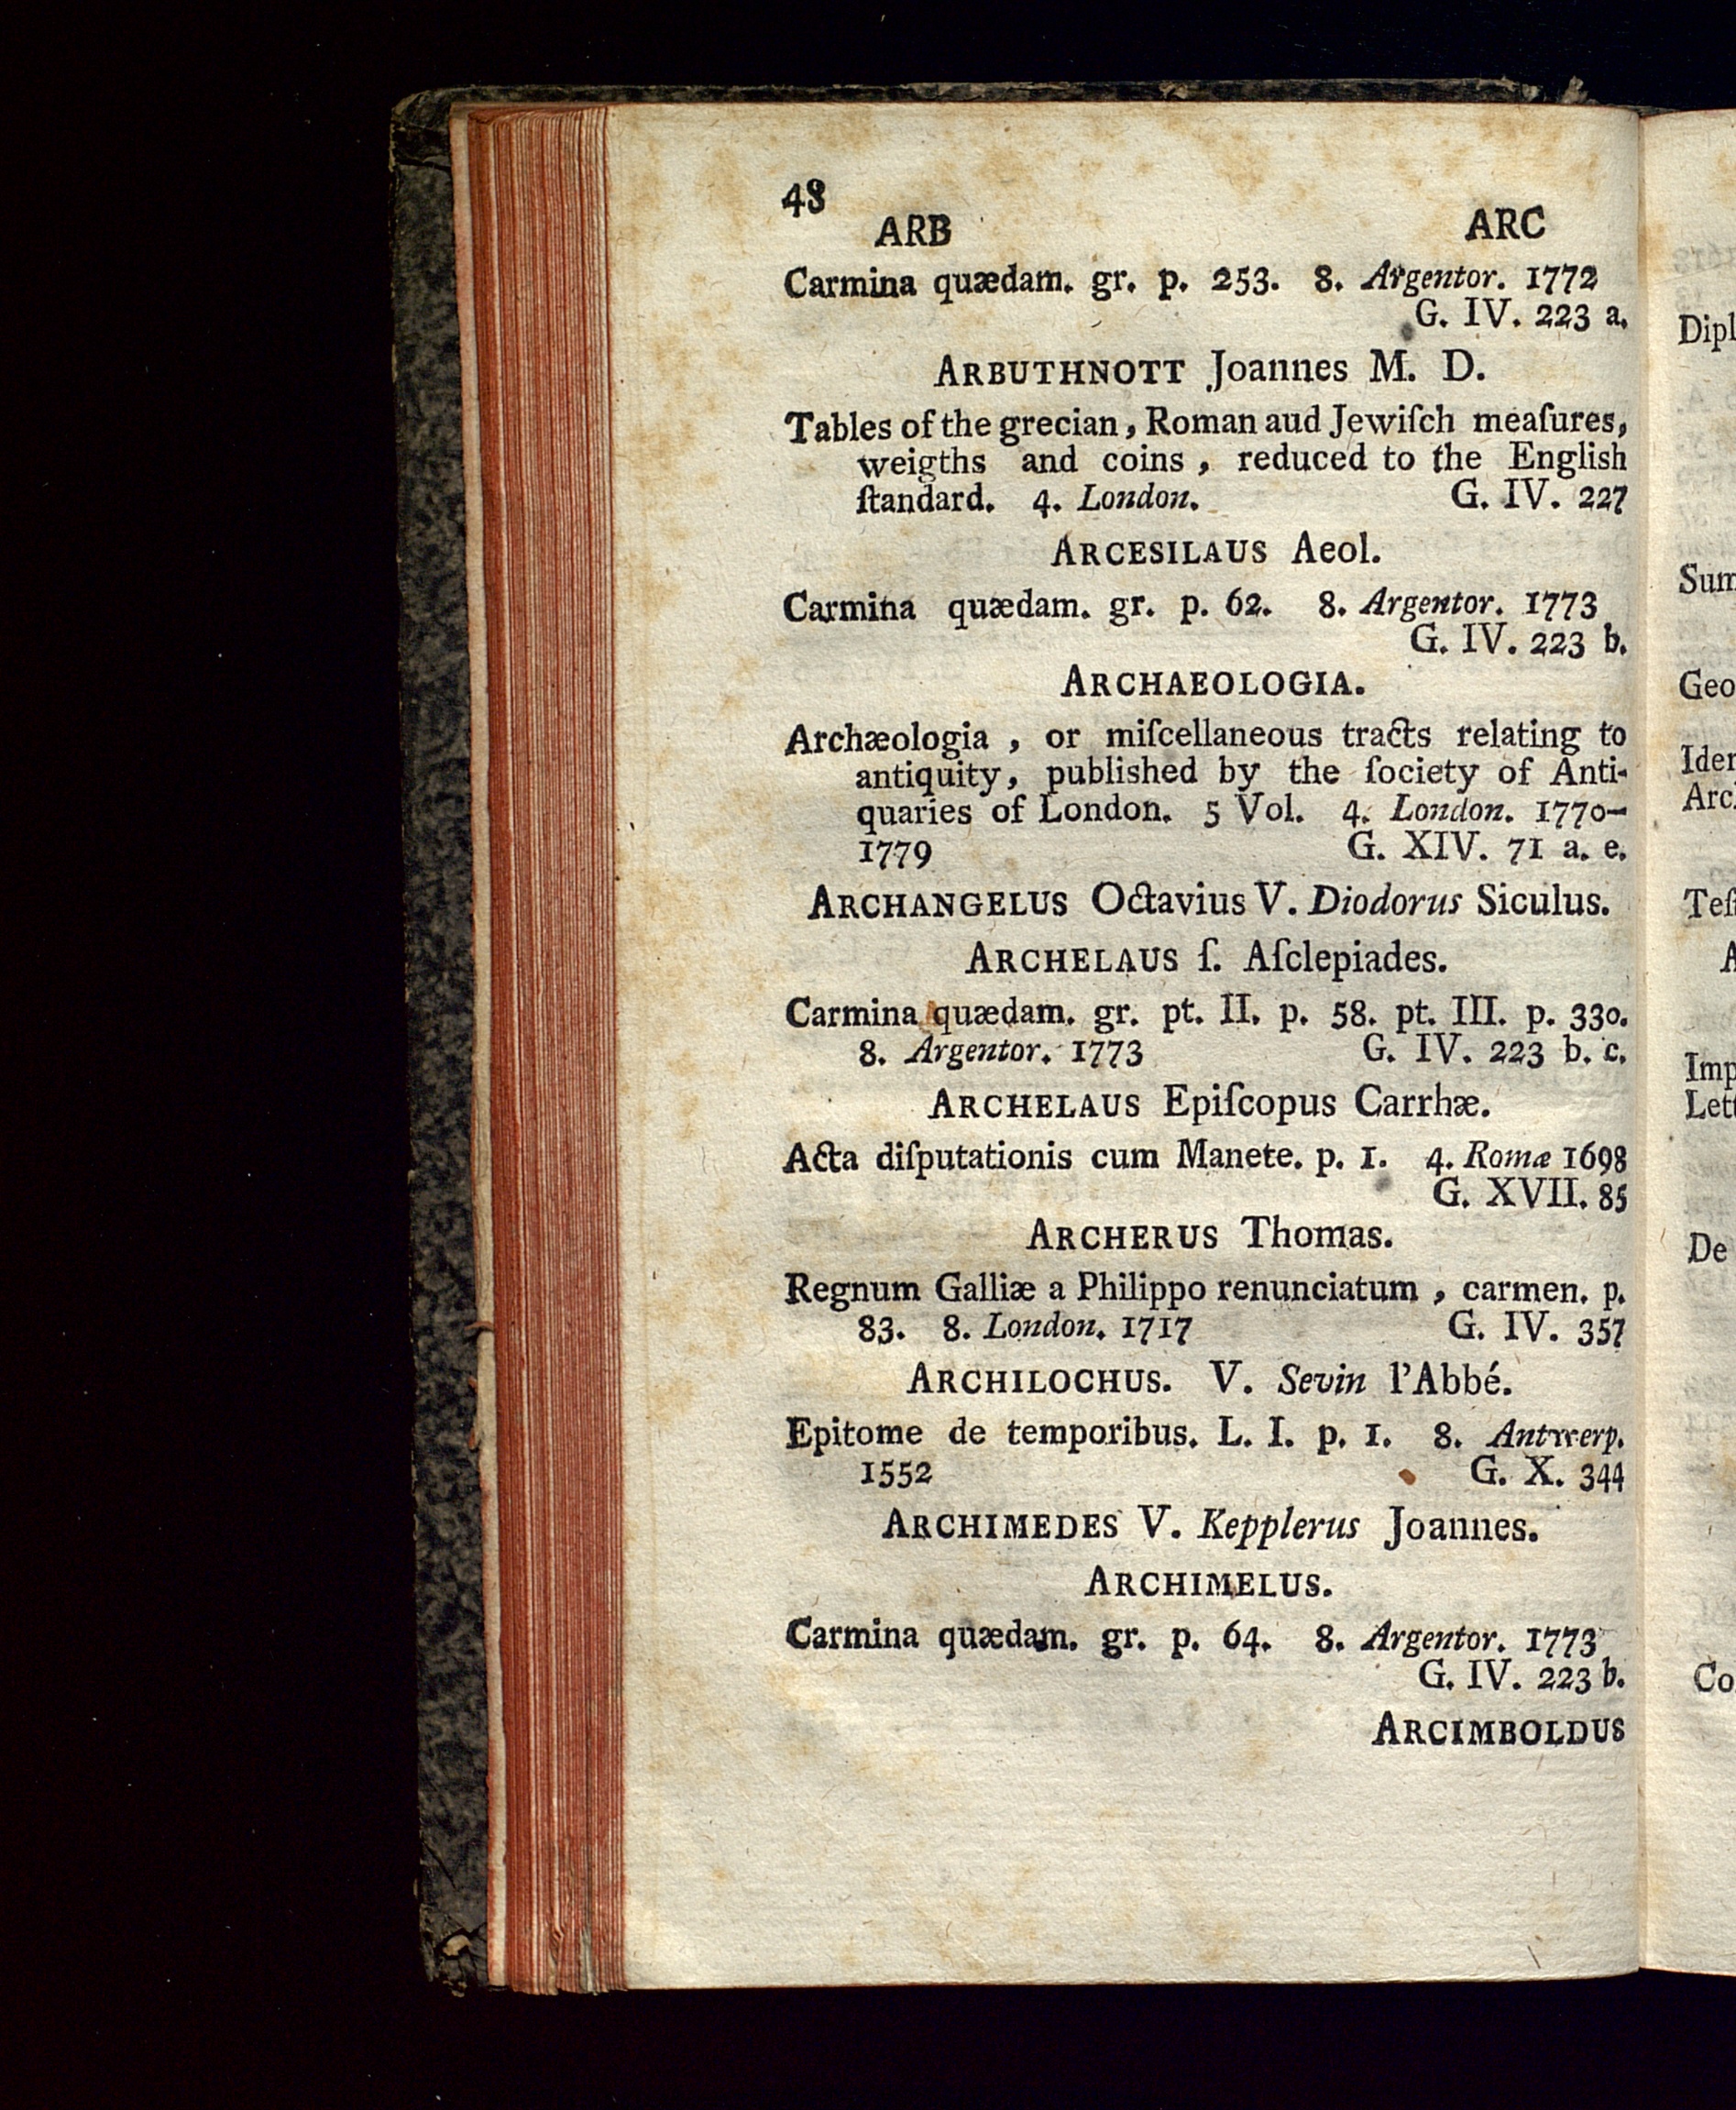 48
ARB ARC
Carmina quædam. gr. p. 253. 8. Argentor. 1772
G. IV. 223 a.
ARBUTHNOTT Joannes M. D.
Tables of the grecian, Roman aud Jewiſch meaſures,
weigths and coins, reduced to the English
ſtandard. 4. London. G. IV. 227
ARCESILAUS Aeol.
Carmina quædam. gr. p. 62. 8. Argentor. 1773
G. IV. 223 b.
ARCHAEOLOGIA.
Archæologia, or miſcellaneous tracts relating to
antiquity, published by the ſociety of Anti-
quaries of London. 5 Vol. 4. London. 1770-
1779 G. XIV. 71 a. e.
ARCHANGELUS Octavius V. Diodorus Siculus.
ARCHELAUS ſ. Aſclepiades.
Carmina quædam. gr. pt. II. p. 58. pt. III. p. 330.
8. Argentor. 1773 G. IV. 223 b. c.
ARCHELAUS Epiſcopus Carrhæ.
Acta diſputationis cum Manete. p. 1. 4. Romæ 1698
G. XVII. 85
ARCHERUS Thomas.
Regnum Galliæ a Philippo renunciatum, carmen. p.
83. 8. London. 1717 G. IV. 357
ARCHILOCHUS. V. Sevin l'Abbé.
Epitome de temporibus. L. I. p. 1. 8. Antwerp.
1552 G. X. 344
ARCHIMEDES V. Kepplerus Joannes.
ARCHIMELUS.
Carmina quædam. gr. p. 64. 8. Argentor. 1773
G. IV. 223 b.
ARCIMBOLDUS
Dipl
Sum
Geo
Iden
Arc
Teſ
A
Imp
Let
De
Co